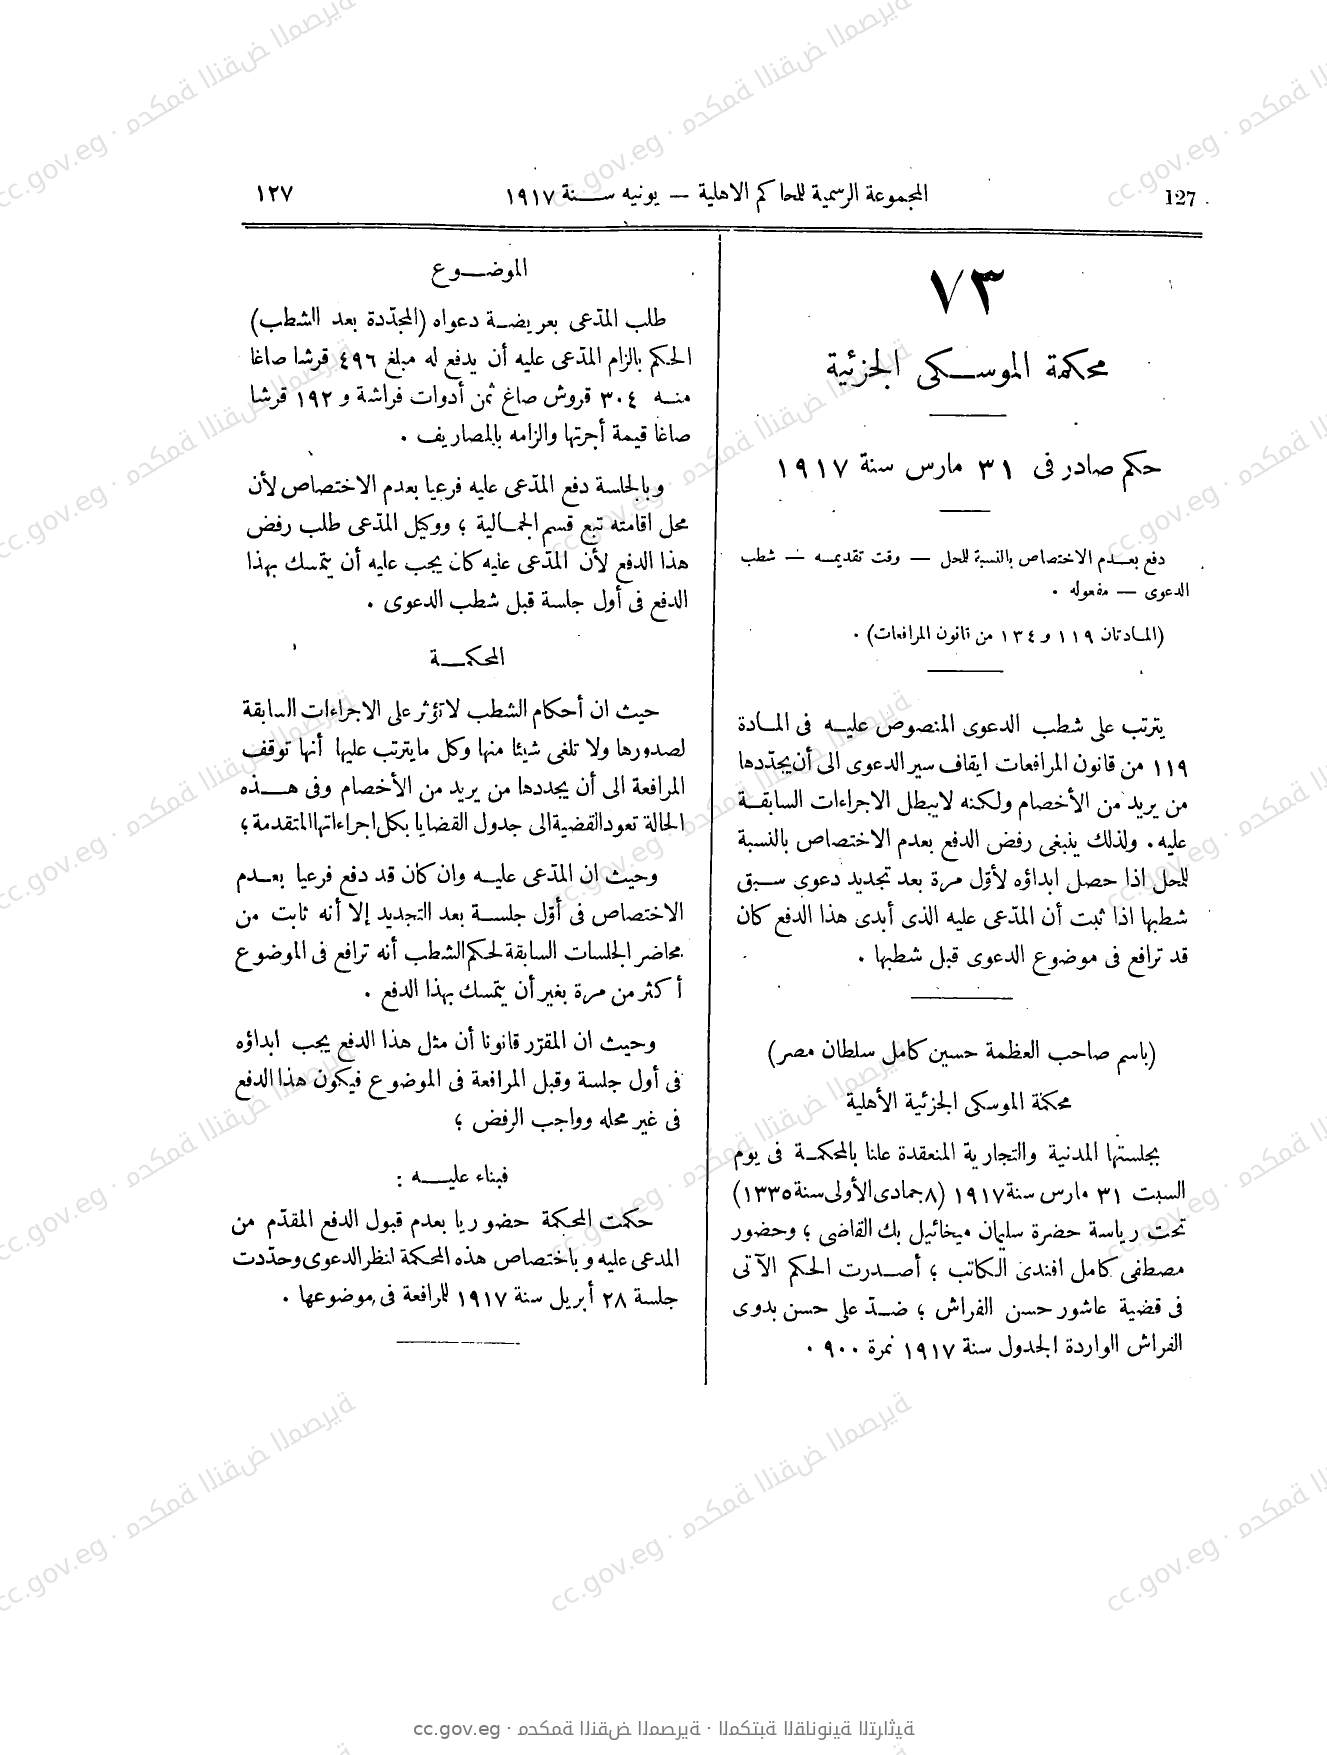 127
المجموعة الرسمية للمحاكم الاهلية — يونيه سنة ١٩١٧
١٢٧
٧٣
محكمة الموسكى الجزئية
حكم صادر فى ٣١ مارس سنة ١٩١٧
دفع بعدم الاختصاص بالنسبة للمحل — وقت تقديمه — شطب
الدعوى — مفعوله .
(المادتان ١١٩ و ١٣٤ من قانون المرافعات) .
يترتب على شطب الدعوى المنصوص عليه فى المادة
١١٩ من قانون المرافعات ايقاف سير الدعوى الى أن يجدّدها
من يريد من الأخصام ولكنه لا يبطل الاجراءات السابقة
عليه . ولذلك ينبغى رفض الدفع بعدم الاختصاص بالنسبة
للمحل اذا حصل ابداؤه لأوّل مرة بعد تجديد دعوى سبق
شطبها اذا ثبت أن المدّعى عليه الذى أبدى هذا الدفع كان
قد ترافع فى موضوع الدعوى قبل شطبها .
(باسم صاحب العظمة حسين كامل سلطان مصر)
محكمة الموسكى الجزئية الأهلية
بجلستها المدنية والتجارية المنعقدة علنا بالمحكمة فى يوم
السبت ٣١ مارس سنة ١٩١٧ (٨ جمادى الأولى سنة ١٣٣٥)
تحت رياسة حضرة سليمان ميخائيل بك القاضى ؛ وحضور
مصطفى كامل افندى الكاتب ؛ أصدرت الحكم الآتى
فى قضية عاشور حسن الفراش ؛ ضدّ على حسن بدوى
الفراش الواردة الجدول سنة ١٩١٧ نمرة ٩٠٠ .
الموضوع
طلب المدّعى بعريضة دعواه (المجدّدة بعد الشطب)
الحكم بالزام المدّعى عليه أن يدفع له مبلغ ٤٩٦ قرشا صاغا
منه ٣٠٤ قروش صاغ ثمن أدوات فراشة و ١٩٢ قرشا
صاغا قيمة أجرتها والزامه بالمصاريف .
وبالجلسة دفع المدّعى عليه فرعيا بعدم الاختصاص لأن
محل اقامته تبع قسم الجمالية ؛ ووكيل المدّعى طلب رفض
هذا الدفع لأن المدّعى عليه كان يجب عليه أن يتمسك بهذا
الدفع فى أول جلسة قبل شطب الدعوى .
المحكمة
حيث ان أحكام الشطب لا تؤثر على الاجراءات السابقة
لصدورها ولا تلغى شيئا منها وكل ما يترتب عليها أنها توقف
المرافعة الى أن يجددها من يريد من الأخصام وفى هذه
الحالة تعود القضية الى جدول القضايا بكل اجراءاتها المتقدمة ؛
وحيث ان المدّعى عليه وان كان قد دفع فرعيا بعدم
الاختصاص فى أوّل جلسة بعد التجديد إلا أنه ثابت من
محاضر الجلسات السابقة لحكم الشطب أنه ترافع فى الموضوع
أكثر من مرة بغير أن يتمسك بهذا الدفع .
وحيث ان المقرّر قانونا أن مثل هذا الدفع يجب ابداؤه
فى أول جلسة وقبل المرافعة فى الموضوع فيكون هذا الدفع
فى غير محله وواجب الرفض ؛
فبناء عليه :
حكمت المحكمة حضوريا بعدم قبول الدفع المقدّم من
المدعى عليه وباختصاص هذه المحكمة لنظر الدعوى وحدّدت
جلسة ٢٨ أبريل سنة ١٩١٧ للمرافعة فى موضوعها .
cc.gov.eg · محكمة النقض المصرية · المكتبة القانونية التراثية